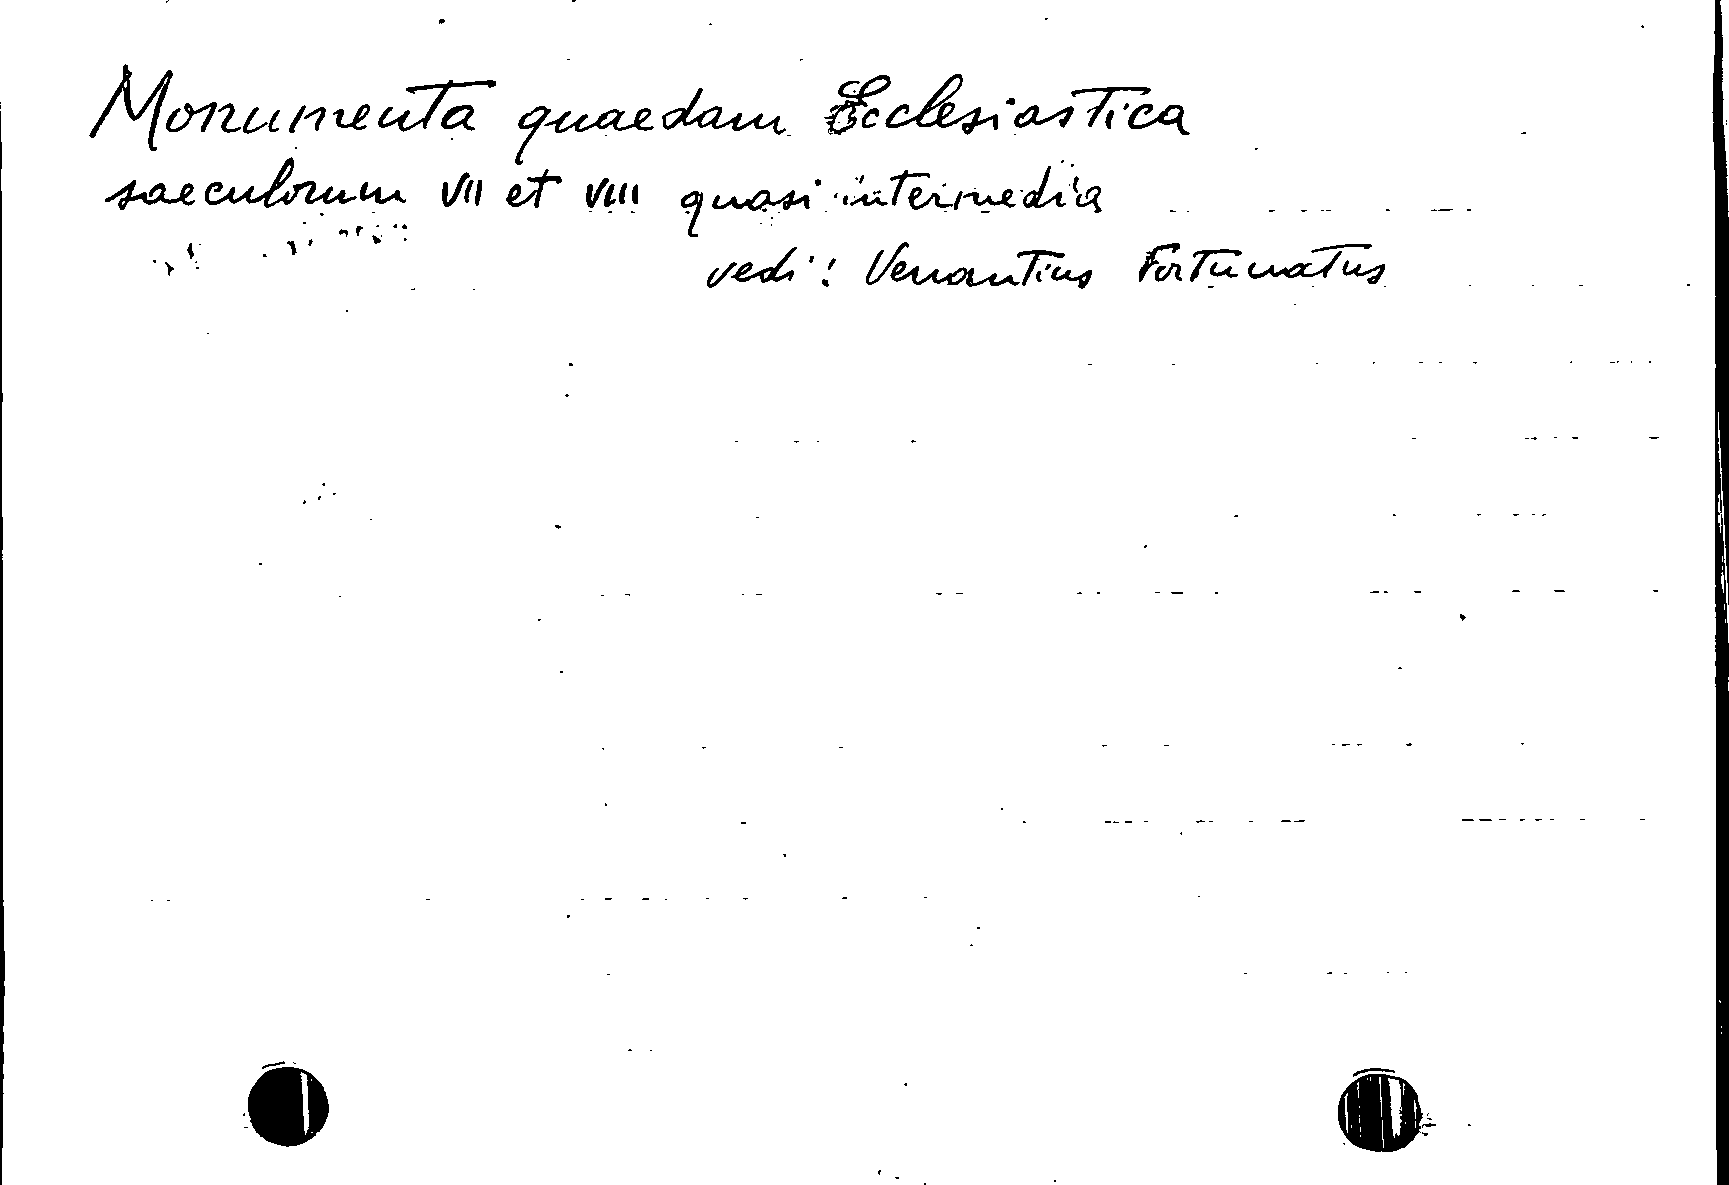 Monumenta quaedam Ecclesiastica
saeculorum VII et VIII quasi intermedia
vedi: Venantius Fortunatus